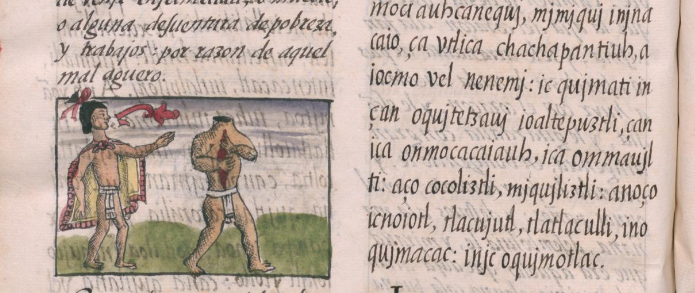 o alguna desuentura de pobreza,
y trabajos: por razon de aquel
mal aguero.
moci auhcanequj, mjmjquj injna
caio, ça vtlica chachapantiuh, a
iocmo vel nenemj: ic qujmati in
çan oqujtetzauj ioaltepuztli, çan
ica onmocacaiauh, ica ommaujl
ti: aço cocoliztli, mjqujliztli: anoço
icnoiotl, tlacujutl, tlatlaculli, ino
qujmacac: injc oqujmotlac.